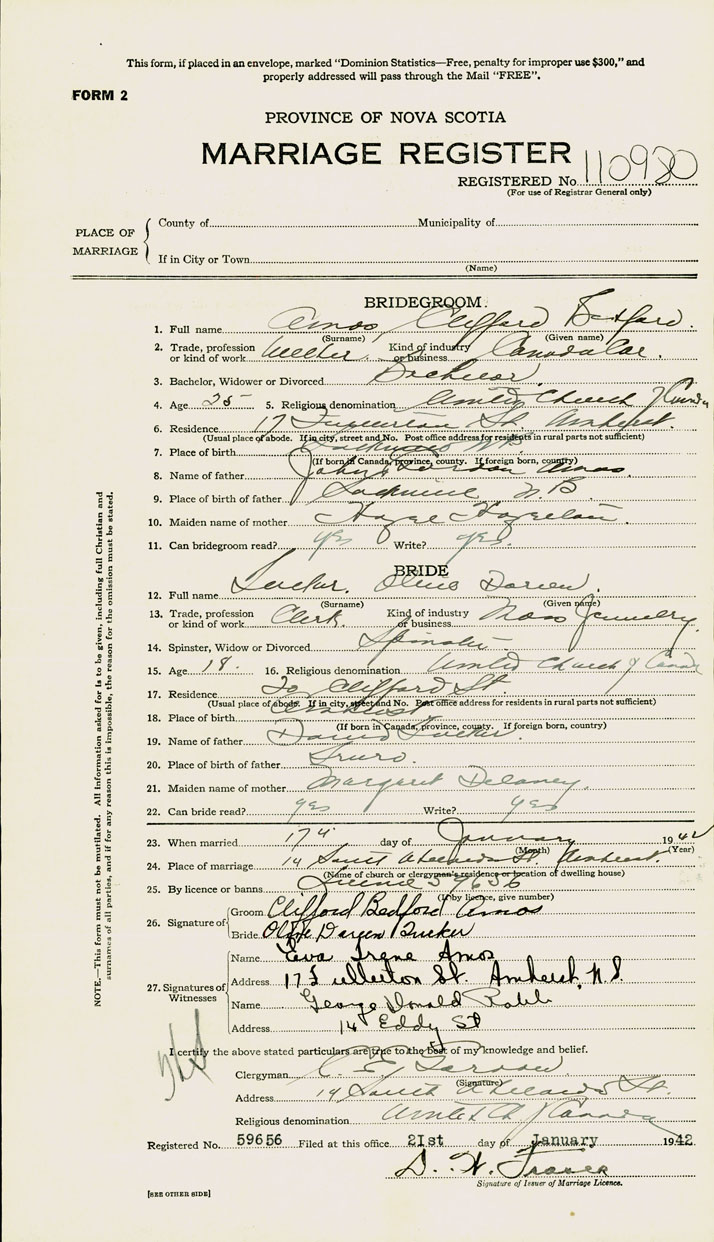 This form, if placed in an envelope, marked "Dominion Statistics—Free, penalty for improper use $300," and
properly addressed will pass through the Mail "FREE".
FORM 2
PROVINCE OF NOVA SCOTIA
MARRIAGE REGISTER
110980
REGISTERED No
(For use of Registrar General only)
PLACE OF MARRIAGE
County of Municipality of
If in City or Town
(Name)
BRIDEGROOM.
1. Full name Amos Clifford Bedford.
(Surname) (Given name)
2. Trade, profession or kind of work Welder. Kind of industry or business Canada Car.
3. Bachelor, Widower or Divorced Bachelor
4. Age 25 5. Religious denomination United Church of Canada
6. Residence 17 Fullerton St. Amherst.
(Usual place of abode. If in city, street and No. Post office address for residents in rural parts not sufficient)
7. Place of birth N.B.
(If born in Canada, province, county. If foreign born, country)
8. Name of father John Amos
9. Place of birth of father N.B
10. Maiden name of mother
11. Can bridegroom read? yes Write? yes.
BRIDE
12. Full name Tucker. Olive Doreen.
(Surname) (Given name)
13. Trade, profession or kind of work Clerk. Kind of industry or business Jewelry.
14. Spinster, Widow or Divorced Spinster
15. Age 18. 16. Religious denomination United Church of Canada
17. Residence Clifford St.
(Usual place of abode. If in city, street and No. Post office address for residents in rural parts not sufficient)
18. Place of birth Amherst
(If born in Canada, province, county. If foreign born, country)
19. Name of father David Tucker.
20. Place of birth of father Truro.
21. Maiden name of mother Margaret Delaney.
22. Can bride read? yes Write? yes
23. When married 17th day of January 1942
(Month) (Year)
24. Place of marriage 14 South St. Amherst.
(Name of church or clergyman's residence or location of dwelling house)
25. By licence or banns License 59656
(If by licence, give number)
26. Signature of
Groom Clifford Bedford Amos
Bride Olive Doreen Tucker
27. Signatures of Witnesses
Name Eva Irene Amos
Address 17 Fullerton St. Amherst, N.S.
Name George Donald
Address 14 Eddy St
I certify the above stated particulars are true to the best of my knowledge and belief.
Clergyman
(Signature)
Address 14 South St.
Religious denomination United Ch. of Canada
Registered No. 59656 Filed at this office 21st day of January 1942
Signature of Issuer of Marriage Licence.
[SEE OTHER SIDE]
NOTE.—This form must not be mutilated. All information asked for is to be given, including full Christian and
surnames of all parties, and if for any reason this is impossible, the reason for the omission must be stated.